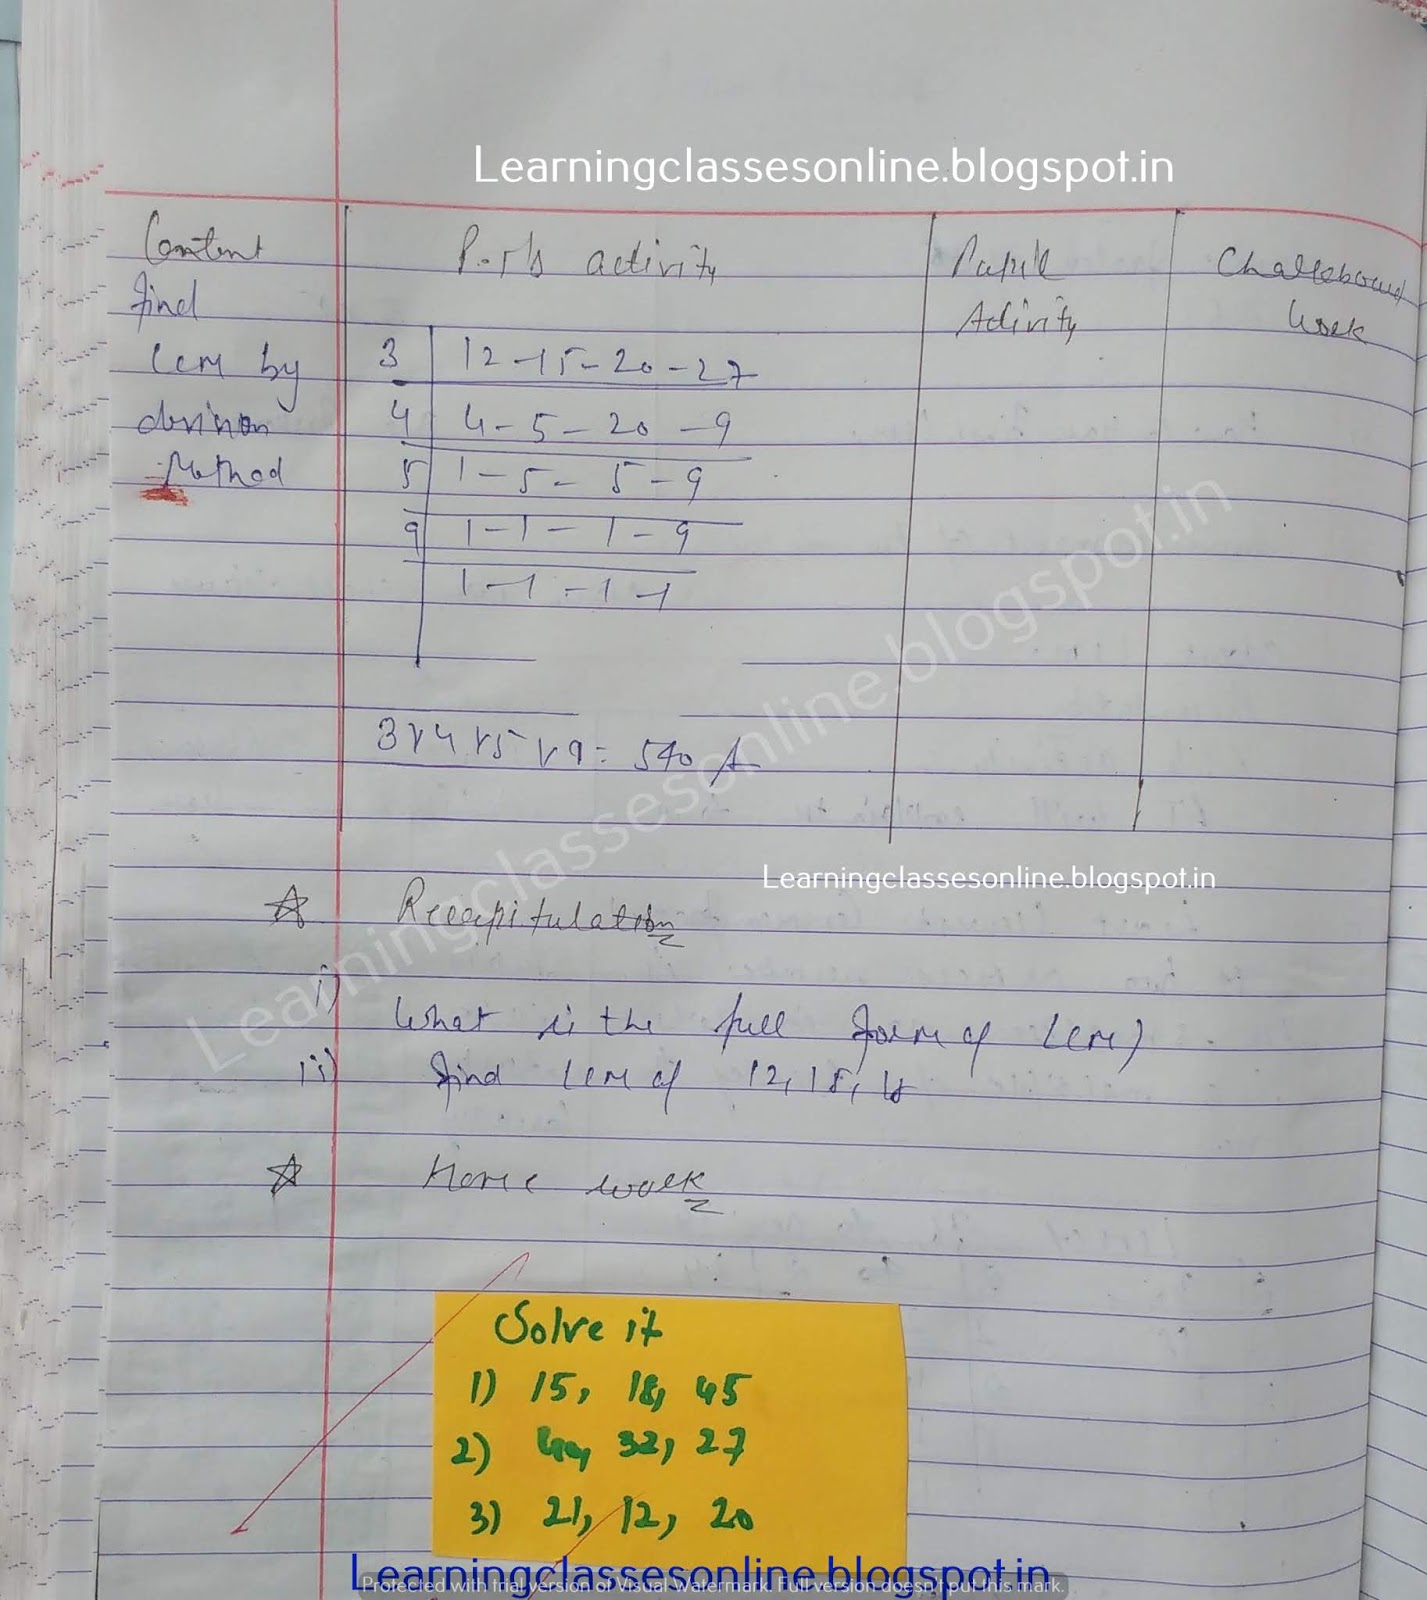 Learningclassesonline.blogspot.in
Content P.T's activity Pupil Chalkboard
find Activity Work
LCM by 3 12-15-20-27
division 4 4-5-20-9
Method 5 1-5-5-9
9 1-1-1-9
1-1-1-1
3x4x5x9=540 A
Learningclassesonline.blogspot.in
Learningclassesonline.blogspot.in
Recapitulation
i) What is the full form of LCM)
ii) find LCM of 12, 15,
Home work
Solve it
1) 15, 18, 45
2) 40, 32, 27
3) 21, 12, 20
Learningclassesonline.blogspot.in
Protected with trial version of Visual Watermark. Full version doesn't put this mark.